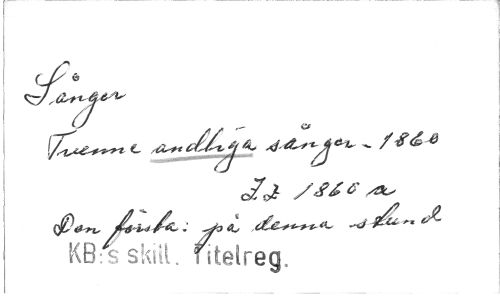 Sånger
Tvenne andliga sånger - 1860
1860 a
Den första: på denna stund
KB:s skill. Titelreg.